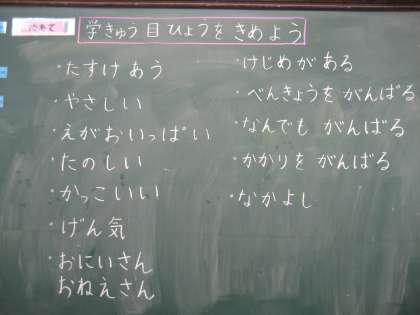 めあて
学きゅう目ひょうをきめよう
・たすけあう
・やさしい
・えがおいっぱい
・たのしい
・かっこいい
・げん気
・おにいさん
おねえさん
・けじめがある
・べんきょうをがんばる
・なんでもがんばる
・かかりをがんばる
・なかよし